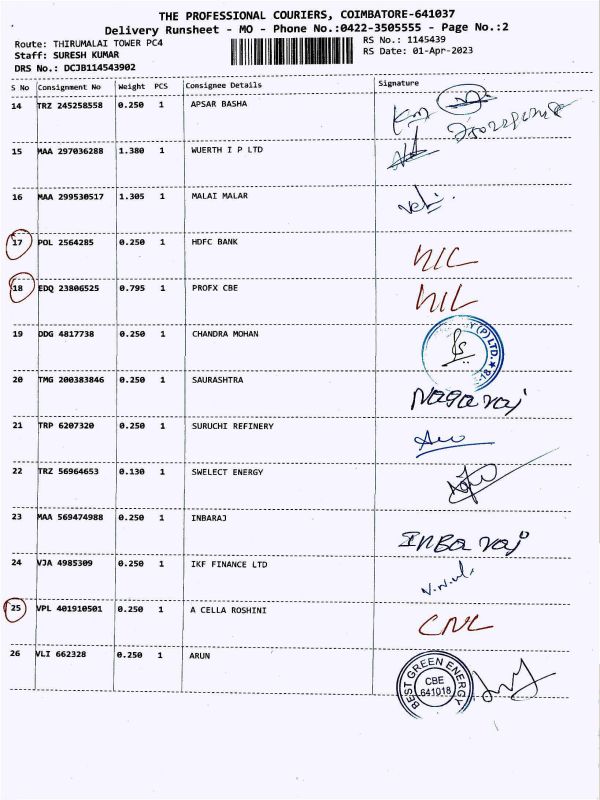 THE PROFESSIONAL COURIERS, COIMBATORE-641037
Delivery Runsheet - MO - Phone No.:0422-3505555 - Page No.:2
Route: THIRUMALAI TOWER PC4
RS No.: 1145439
Staff: SURESH KUMAR
RS Date: 01-Apr-2023
DRS No.: DCJB114543902
S No Consignment No Weight PCS Consignee Details Signature
14 TRZ 245258558 0.250 1 APSAR BASHA
15 MAA 297036288 1.380 1 WUERTH I P LTD
16 MAA 299530517 1.305 1 MALAI MALAR
17 POL 2564285 0.250 1 HDFC BANK NIL
18 EDQ 23806525 0.795 1 PROFX CBE NIL
19 DDG 4817738 0.250 1 CHANDRA MOHAN
(P) LTD.
20 TMG 200383846 0.250 1 SAURASHTRA Nagaraj
21 TRP 6207320 0.250 1 SURUCHI REFINERY
22 TRZ 56964653 0.130 1 SWELECT ENERGY
23 MAA 569474988 0.250 1 INBARAJ Inba raj
24 VJA 4985309 0.250 1 IKF FINANCE LTD
25 VPL 401910501 0.250 1 A CELLA ROSHINI CNL
26 VLI 662328 0.250 1 ARUN
BEST GREEN ENERGY
CBE
641018